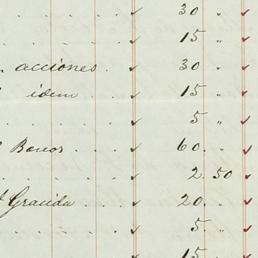 . . . . ✓ 30 „ ✓
. . . . ✓ 15 „ ✓
. acciones . ✓ 30 „ ✓
idem . ✓ 15 „ ✓
. . . . ✓ 5 „ ✓
Bonos . . . ✓ 60 „ ✓
. . . . ✓ 2 50 ✓
Gravida . . ✓ 20 „ ✓
. . . . ✓ 5 „ ✓
✓ 15 „ ✓